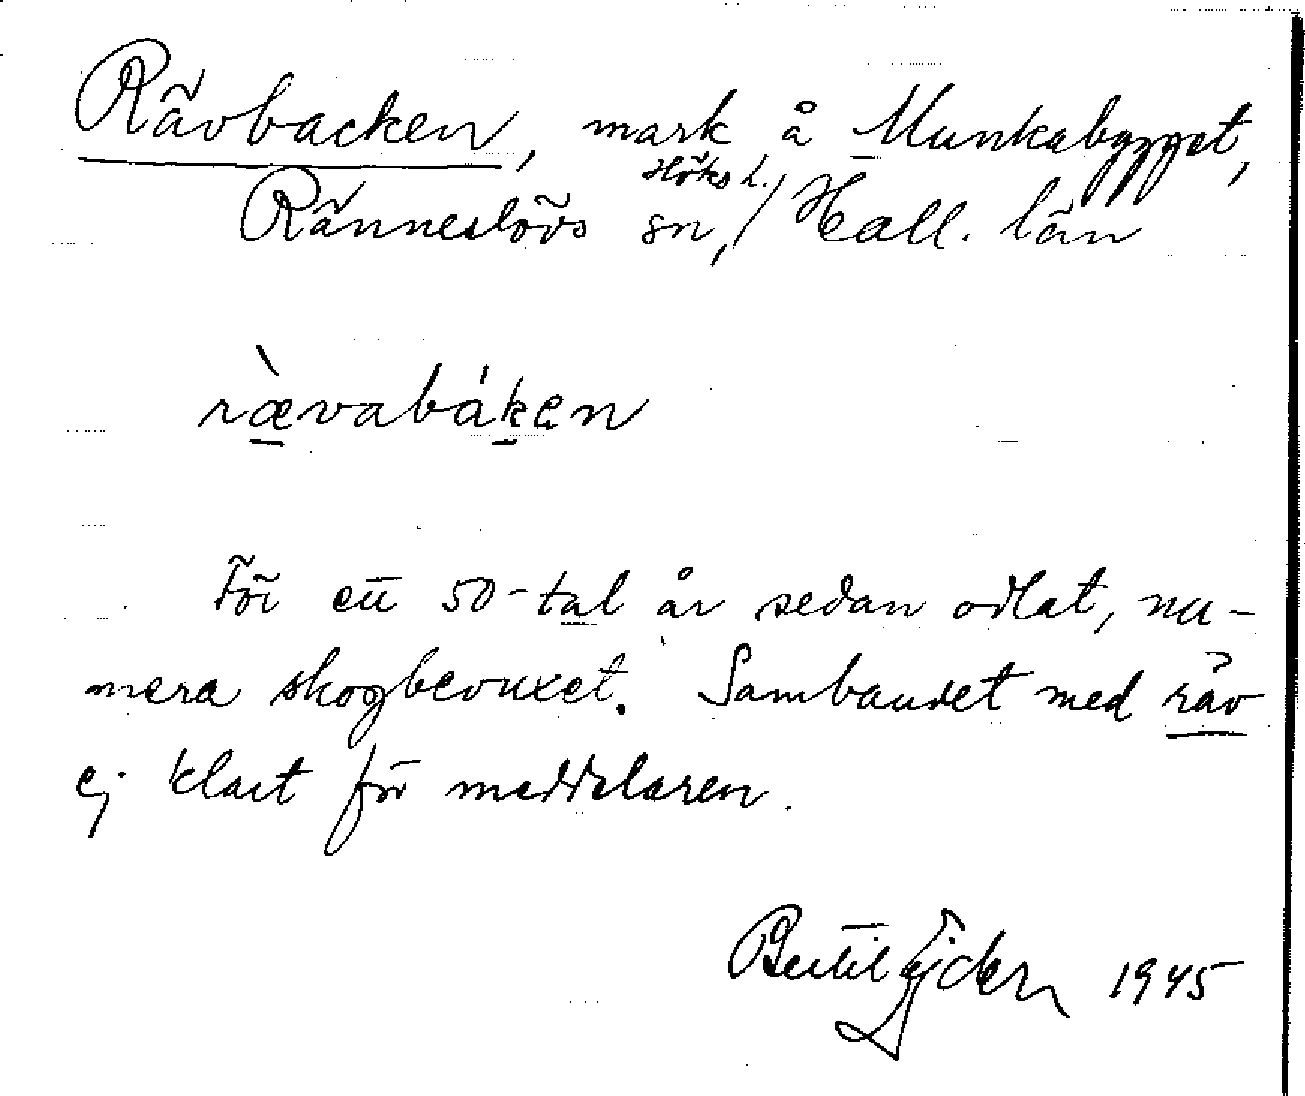 Rävbacken, mark å Munkabygget,
Ränneslövs sn, Höks h. / Hall. län
rævabáken
För ett 50-tal år sedan odlat, nu-
mera skogbevuxet. Sambandet med räv
ej klart för meddelaren.
Bertil Ejder 1945